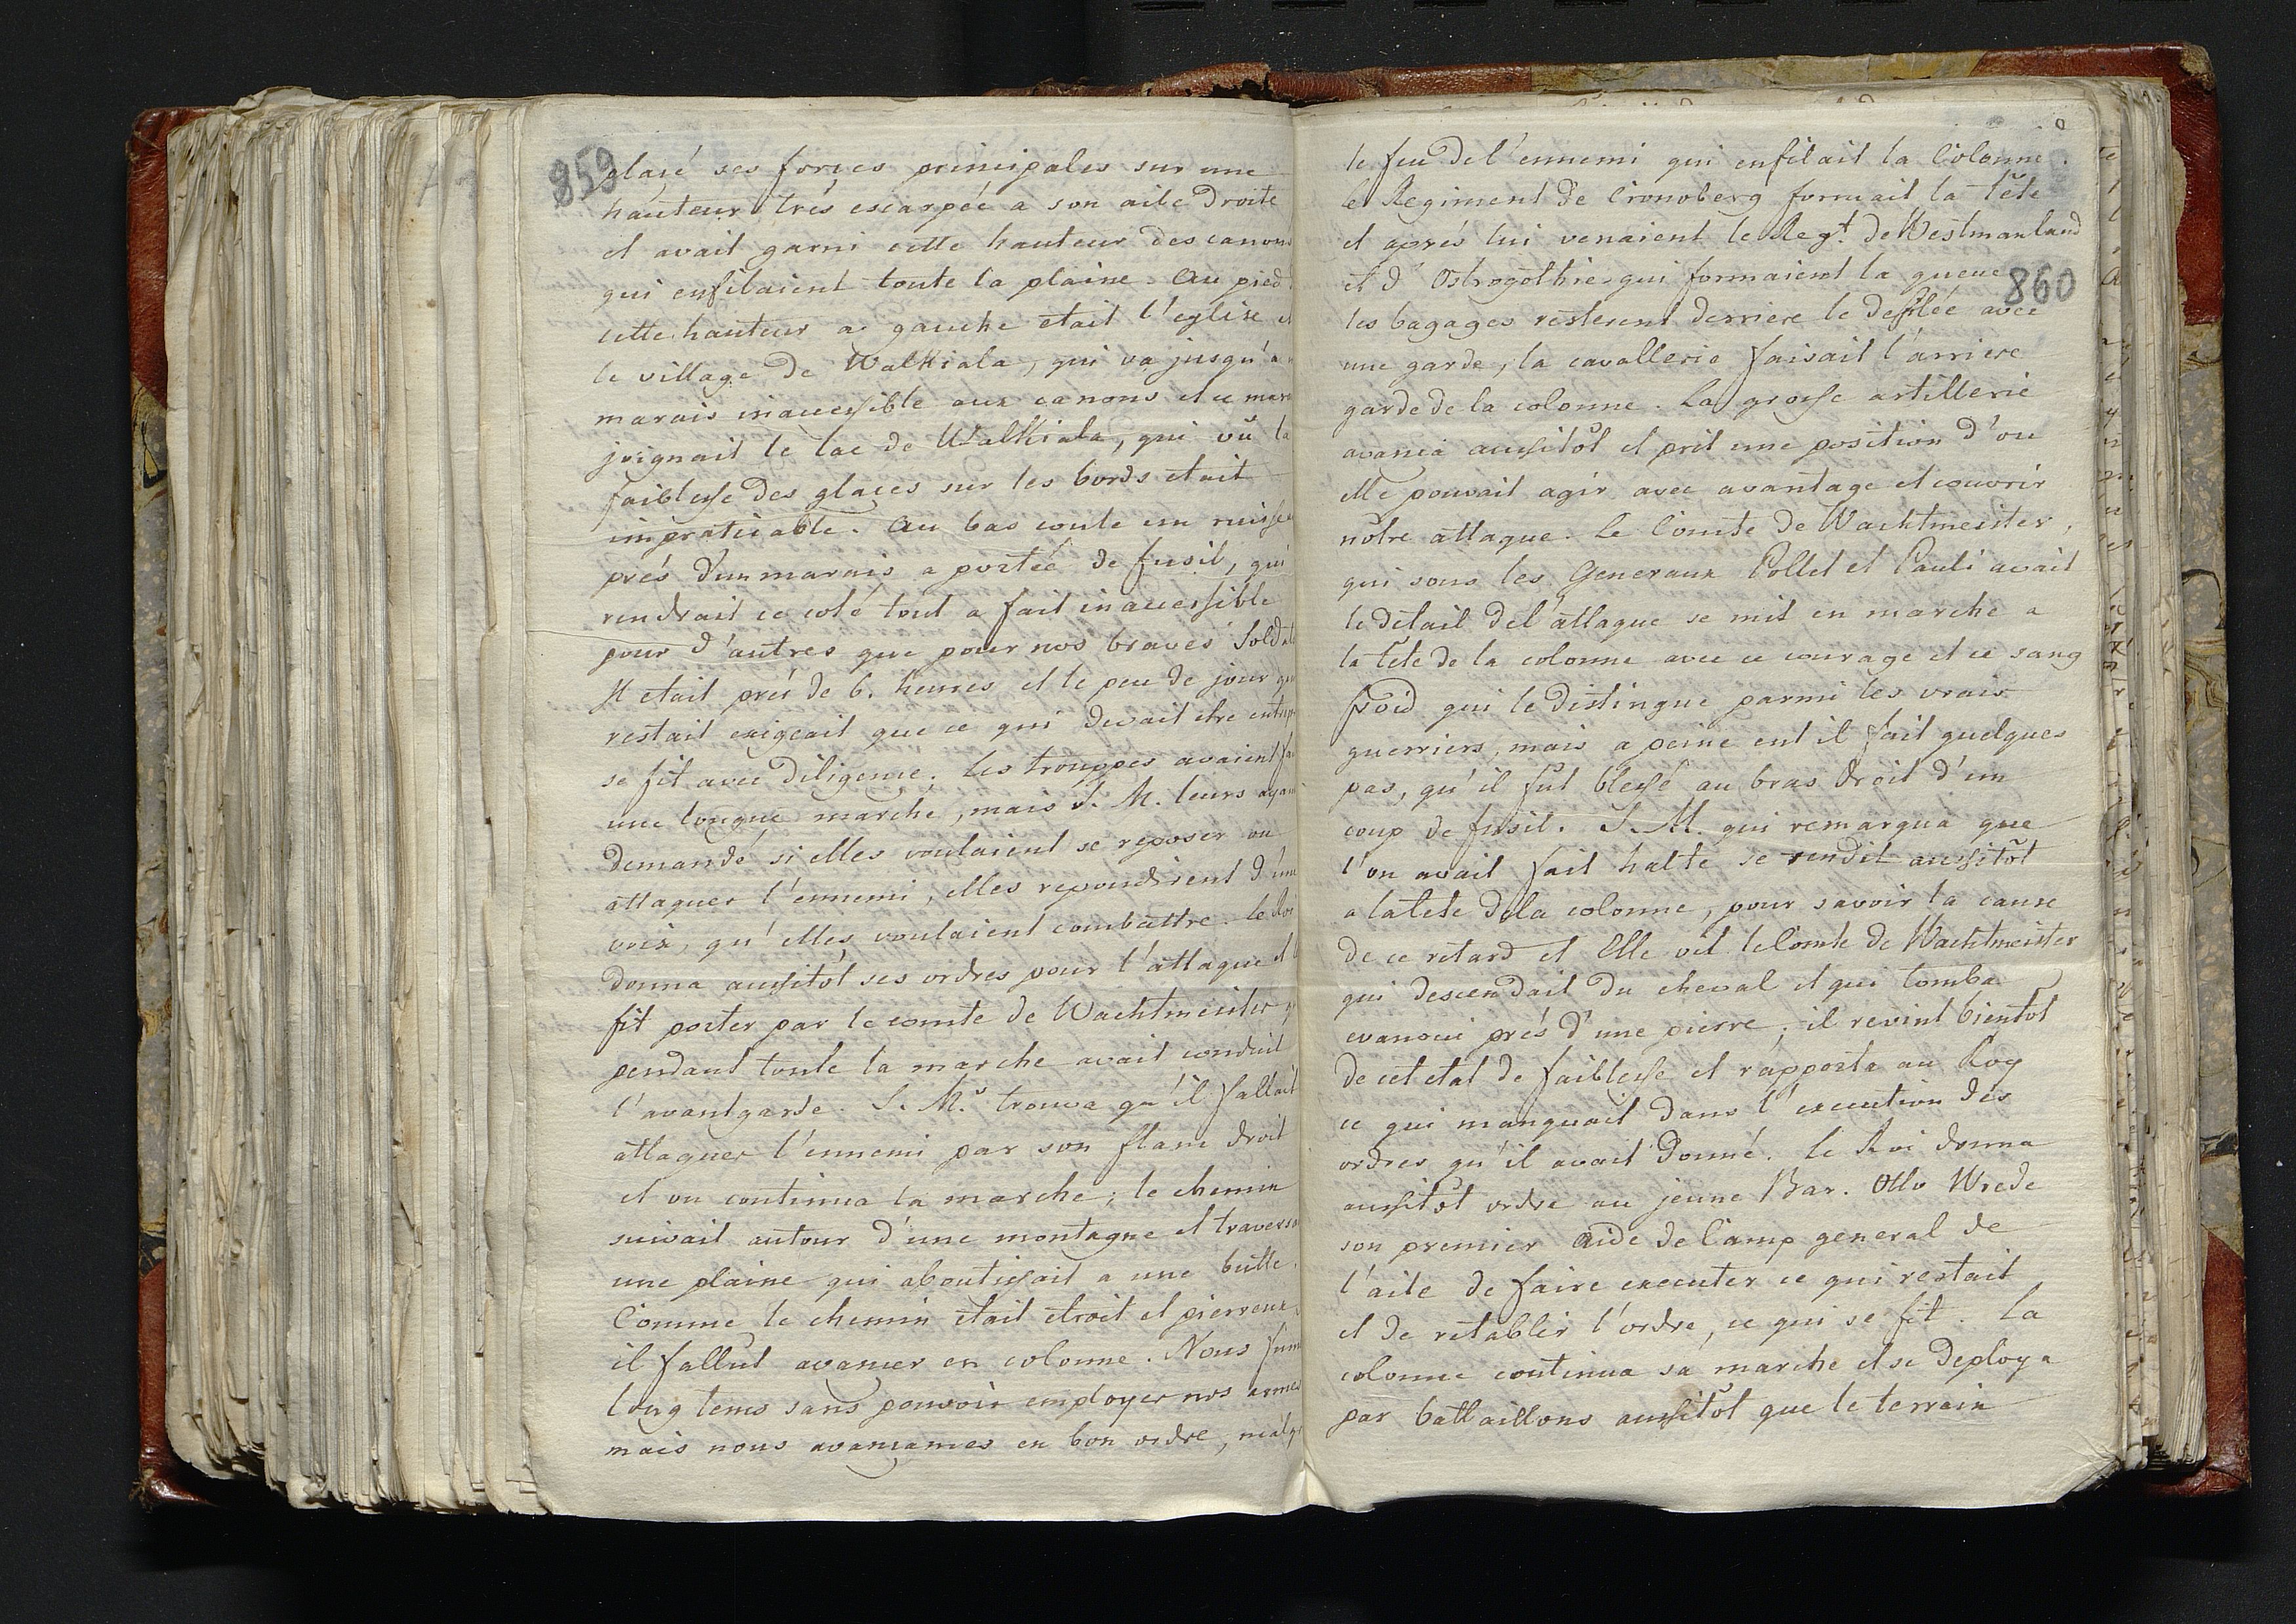 859
placé ses forces principales sur une
hauteur trés escarpée a son aile droite
et avait garni cette hauteur des canons
qui enfilaient toute la plaine. Au pied
cette hauteur a gauche etait l'eglise et
le village de Walkiala, qui va jusqu'a
marais inaccessible aux canons et ce
joignait le lac de Walkiala, qui vû la
faiblesse des glaces sur les bords etait
impraticable. Au bas coule un
prés d'un marais a portée de fusil, qui
rendrait ce coté tout a fait inaccessible
pour d'autres que pour nos braves
Il etait prés de 6. heures et le peu de jour
restait exigeait que ce qui devait etre
se fit avec diligence. Les trouppes avaient
une longue marche, mais S. M. leurs
demandé si elles voulaient se reposer ou
attaquer l'ennemi, elles repondirent d'une
voix, qu'elles voulaient combattre. Le Roi
donna aussitôt ses ordres pour l'attaque et
fit porter par le comte de Wachtmeister
pendant toute la marche avait conduit
l'avantgarde. S. M. trouva qu'il fallait
attaquer l'ennemi par son flanc droit
et on continua la marche; le chemin
suivait autour d'une montagne et
une plaine qui aboutissait a une butte.
Comme le chemin etait etroit et pierreux,
il fallut avancer en colonne. Nous
long tems sans pouvoir employer nos armes
mais nous avançames en bon ordre,
le feu de l'ennemi qui enfilait la Colonne.
le Regiment de Cronoberg formait la tête
et aprés lui venaient le Reg.t de Westmanland
et d'Ostrogothie qui formaient la queue
860
les bagages resterent derriere le defilée avec
une garde, la cavallerie faisait l'arriere
garde de la colonne. La grosse artillerie
avança aussitôt et prit une position d'ou
elle pouvait agir avec avantage et couvrir
nôtre attaque. Le Comte de Wachtmeister,
qui sous les Generaux Pollet et Pauli avait
le détail de l'attaque se mit en marche a
la tête de la colonne avec ce courage et ce sang
froid qui le distingue parmi les vrais
guerriers, mais a peine eut il fait quelques
pas, qu'il fut blessé au bras droit d'un
coup de fusil. S. M. qui remarqua que
l'on avait fait halte se rendit aussitôt
a la tete de la colonne, pour savoir la cause
de ce retard et Elle vit le Comte de Wachtmeister
qui descendait du cheval et qui tomba
evanoui prés d'une pierre; il revint bientot
de cet etat de faiblesse et rapporta au Roy
ce qui manquait dans l'execution des
ordres qu'il avait donné. Le Roi donna
aussitôt ordre au jeune Bar. Otto Wrede
son premier Aide de Camp general de
l'aile de faire executer ce qui restait
et de retablir l'ordre, ce qui se fit. La
colonne continua sa marche et se deploya
par battaillons aussitôt que le terrain